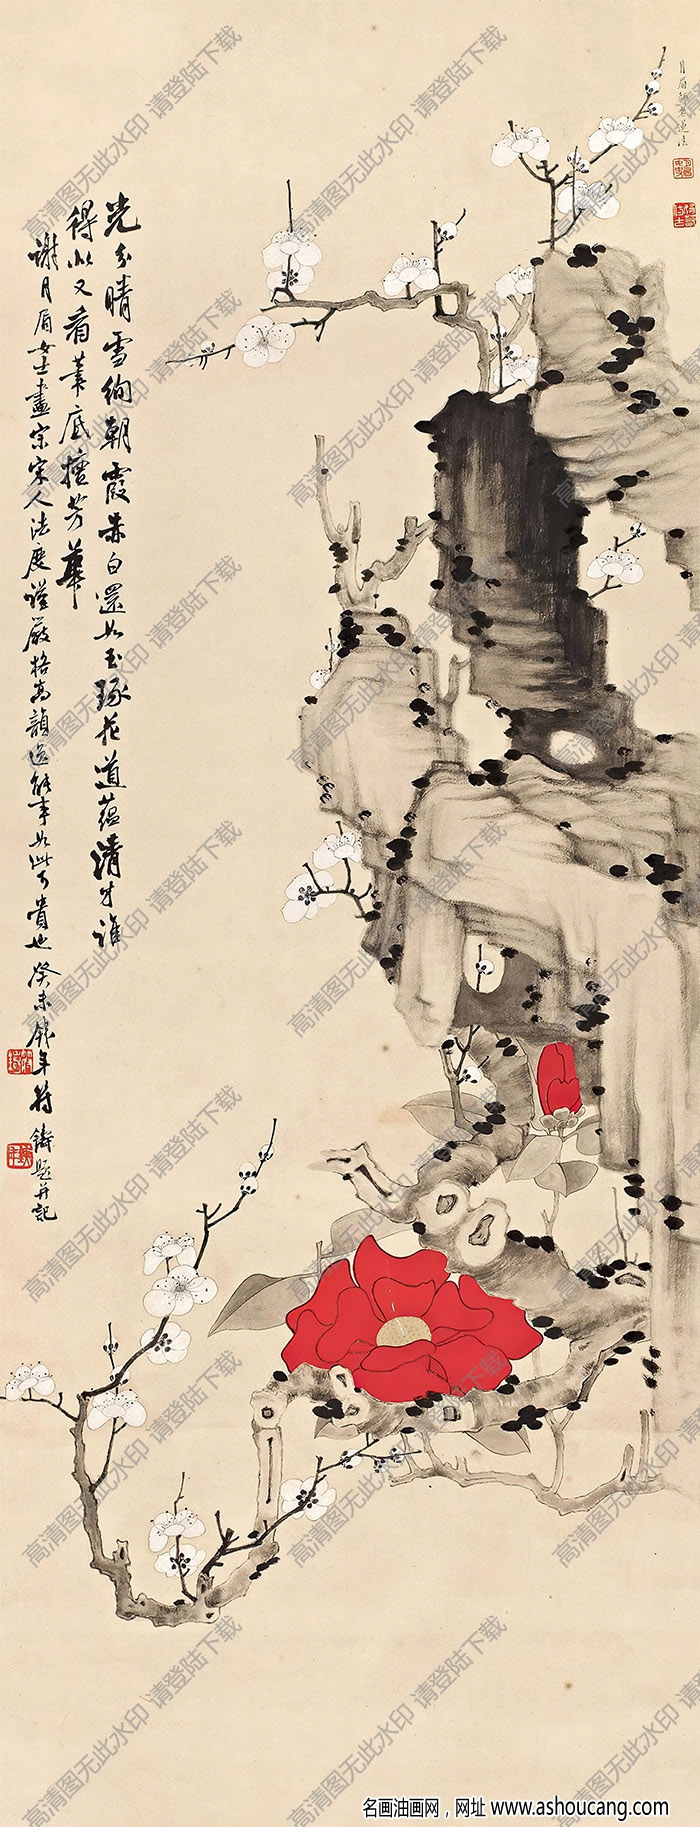 月眉
光分晴雪絢朝霞赤白還如玉琢花道蘊清才誰
得似又看筆底擅芳華
謝月眉女士畫宗宋人法度謹嚴格高韻逸能事如此可貴也癸未餞年符鑄題并記
高清图无此水印 请登陆下载
名画油画网，网址 www.ashoucang.com